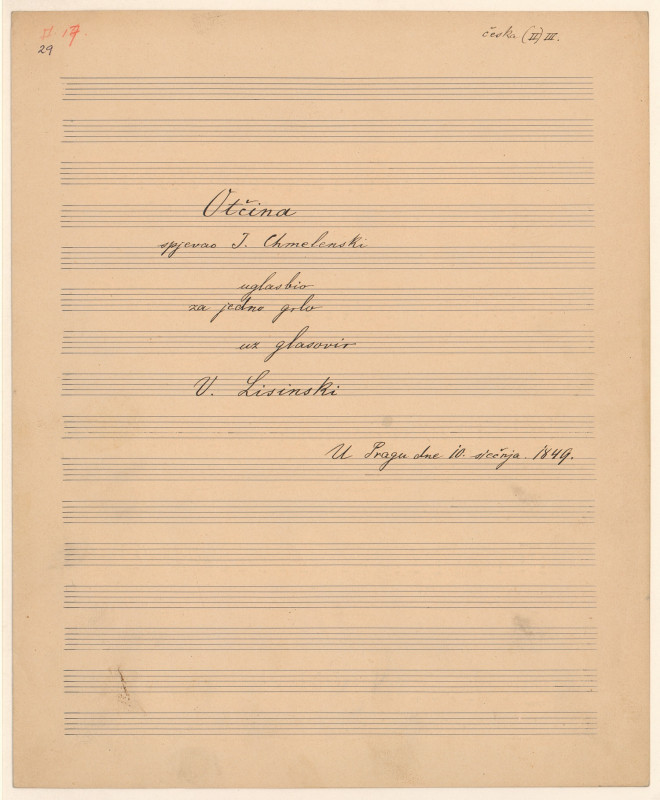 II. 17.
29
česka (II) III.
Otčina
spjevao J. Chmelenski
uglasbio
za jedno grlo
uz glasovir
V. Lisinski
U Pragu dne 10. sječnja. 1849.